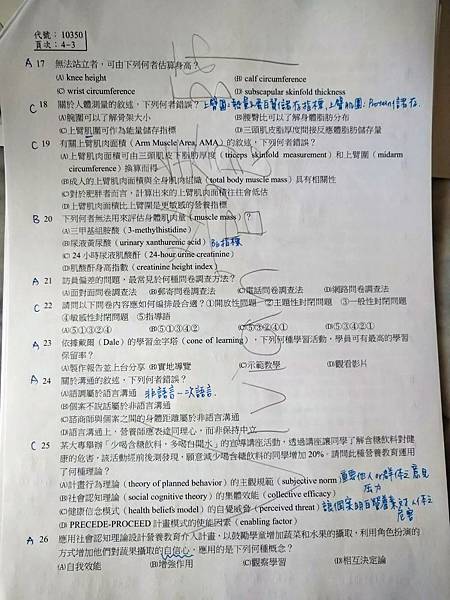 代號：10350
頁次：4-3
A 17 無法站立者，可由下列何者估算身高？
(A) knee height (B) calf circumference
(C) wrist circumference (D) subscapular skinfold thickness
C 18 關於人體測量的敘述，下列何者錯誤？
(A)腕圍可以了解骨架大小 (B)腰臀比可以了解身體脂肪分布
(C)上臂肌圍可作為能量儲存指標 (D)三頭肌皮脂厚度間接反應體脂肪儲存量
C 19 有關上臂肌肉面積（Arm Muscle Area, AMA）的敘述，下列何者錯誤？
(A)上臂肌肉面積可由三頭肌皮下脂肪厚度（triceps skinfold measurement）和上臂圍（midarm
circumference）換算而得
(B)成人的上臂肌肉面積與全身肌肉組織（total body muscle mass）具有相關性
(C)對於肥胖者而言，計算出來的上臂肌肉面積往往會低估
(D)上臂肌肉面積比上臂圍是更敏感的營養指標
B 20 下列何者無法用來評估身體肌肉量（muscle mass）？
(A)三甲基組胺酸（3-methylhistidine）
(B)尿液黃尿酸（urinary xanthurenic acid） B6指標
(C) 24 小時尿液肌酸酐（24-hour urine creatinine）
(D)肌酸酐身高指數（creatinine height index）
A 21 訪員偏差的問題，最常見於何種問卷調查方法？
(A)面對面問卷調查法 (B)郵寄問卷調查法 (C)電話問卷調查法 (D)網路問卷調查法
C 22 請問以下問卷內容應如何編排最合適？①開放性問題 ②主題性封閉問題 ③一般性封閉問題
④敏感性封閉問題 ⑤指導語
(A)⑤①③②④ (B)⑤①③④② (C)⑤③②④① (D)⑤③④②①
A 23 依據戴爾（Dale）的學習金字塔（cone of learning），下列何種學習活動，學員可有最高的學習
保留率？
(A)製作報告並上台分享 (B)實地導覽 (C)示範教學 (D)觀看影片
A 24 關於溝通的敘述，下列何者錯誤？
(A)語調屬於語言溝通
(B)個案不說話屬於非語言溝通
(C)諮商師與個案之間的身體距離屬於非語言溝通
(D)語言溝通上，營養師應表達同理心，而非保持中立
C 25 某大專舉辦「少喝含糖飲料，多喝白開水」的宣導講座活動，透過講座讓同學了解含糖飲料對健
康的危害，該活動經前後測發現，願意減少喝含糖飲料的同學增加 20%。請問此種營養教育運用
了何種理論？
(A)計畫行為理論（theory of planned behavior）的主觀規範（subjective norm
(B)社會認知理論（social cognitive theory）的集體效能（collective efficacy）
(C)健康信念模式（health beliefs model）的自覺威脅（perceived threat）
(D) PRECEDE-PROCEED 計畫模式的使能因素（enabling factor）
A 26 應用社會認知理論設計營養教育介入計畫，以鼓勵學童增加蔬菜和水果的攝取，利用角色扮演的
方式增加他們對蔬果攝取的自信心，應用的是下列何種概念？
(A)自我效能 (B)增強作用 (C)觀察學習 (D)相互決定論